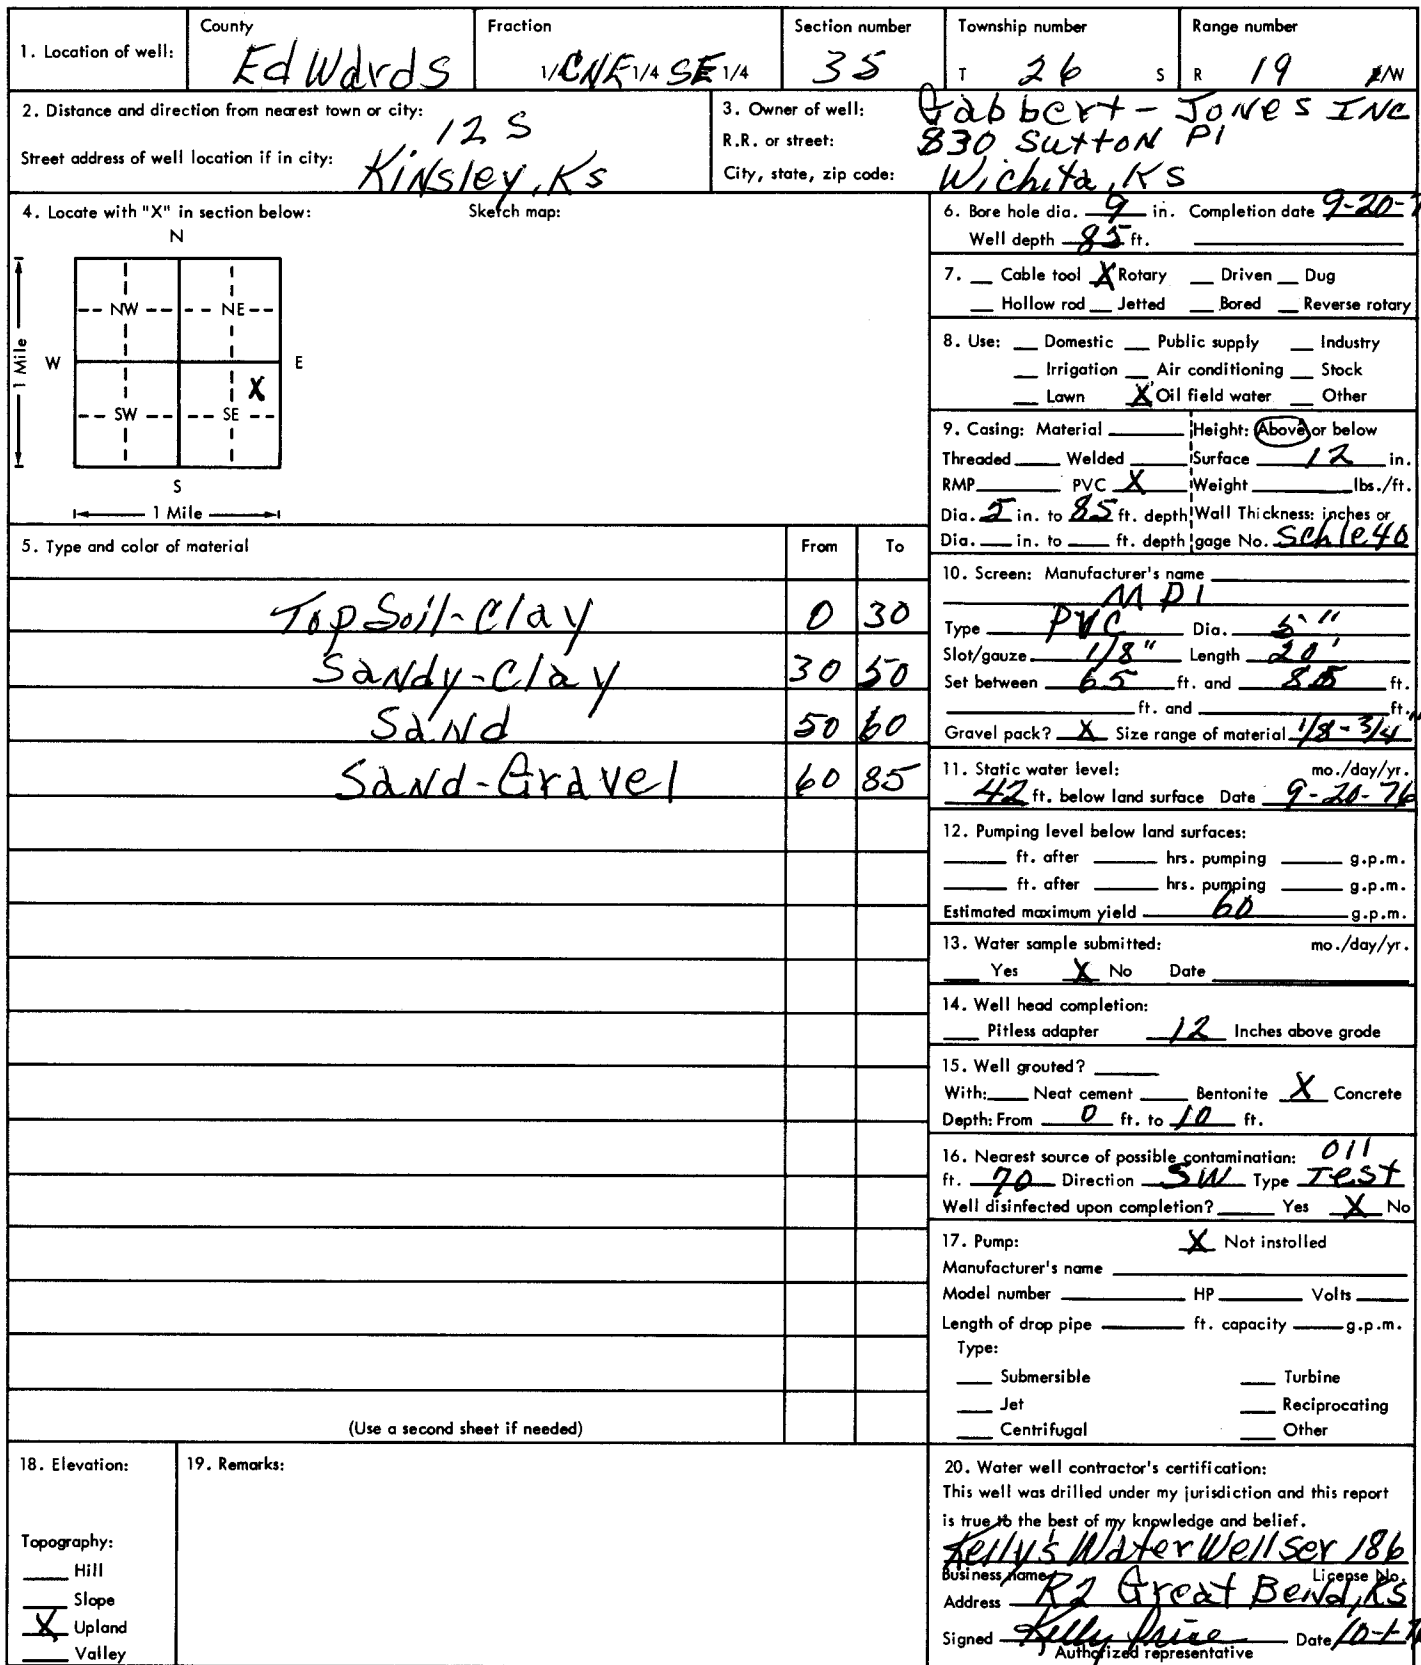 County Fraction Section number Township number Range number
1. Location of well: EdWards 1/4 CNE 1/4 SE 1/4 35 T 26 S R 19 E/W
2. Distance and direction from nearest town or city: 12 S
Street address of well location if in city: Kinsley, Ks
3. Owner of well: Gabbert - Jones Inc
R.R. or street: 830 Sutton Pl
City, state, zip code: Wichita, Ks
4. Locate with "X" in section below: Sketch map:
N
NW NE
W E
X
SW SE
S
1 Mile
1 Mile
5. Type and color of material From To
Top Soil - Clay 0 30
Sandy - Clay 30 50
Sand 50 60
Sand - Gravel 60 85
(Use a second sheet if needed)
6. Bore hole dia. 9 in. Completion date 9-20-7
Well depth 85 ft.
7. Cable tool X Rotary Driven Dug
Hollow rod Jetted Bored Reverse rotary
8. Use: Domestic Public supply Industry
Irrigation Air conditioning Stock
Lawn X Oil field water Other
9. Casing: Material Height: Above or below
Threaded Welded Surface 12 in.
RMP PVC X Weight lbs./ft.
Dia. 5 in. to 85 ft. depth Wall Thickness: inches or
Dia. in. to ft. depth gage No. Schle 40
10. Screen: Manufacturer's name
MPI
Type PVC Dia. 5"
Slot/gauze 1/8" Length 20'
Set between 65 ft. and 85 ft.
ft. and ft.
Gravel pack? X Size range of material 1/8 - 3/4"
11. Static water level: mo./day/yr.
42 ft. below land surface Date 9-20-76
12. Pumping level below land surfaces:
ft. after hrs. pumping g.p.m.
ft. after hrs. pumping g.p.m.
Estimated maximum yield 60 g.p.m.
13. Water sample submitted: mo./day/yr.
Yes X No Date
14. Well head completion:
Pitless adapter 12 Inches above grade
15. Well grouted?
With: Neat cement Bentonite X Concrete
Depth: From 0 ft. to 10 ft.
16. Nearest source of possible contamination: Oil
ft. 70 Direction SW Type Test
Well disinfected upon completion? Yes X No
17. Pump: X Not installed
Manufacturer's name
Model number HP Volts
Length of drop pipe ft. capacity g.p.m.
Type:
Submersible Turbine
Jet Reciprocating
Centrifugal Other
18. Elevation:
Topography:
Hill
Slope
X Upland
Valley
19. Remarks:
20. Water well contractor's certification:
This well was drilled under my jurisdiction and this report
is true to the best of my knowledge and belief.
Kelly's Water Well Ser 186
Business name License No.
Address R2 Great Bend, Ks
Signed Kelly Price Date 10-1-7
Authorized representative